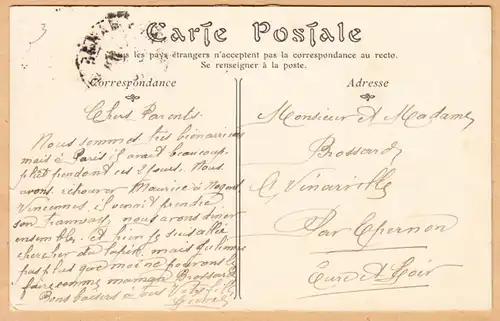 3
Carte Postale
Tous les pays étrangers n'acceptent pas la correspondance au recto.
Se renseigner à la poste.
Correspondance
Adresse
Chers Parents.
Nous sommes très bien arrivés
mais à Paris il avait beaucoup
plut pendant ces 2 jours. Nous
avons retrouver Maurice à Nogent
Vincennes il venait prendre
son tramway, nous avons diner
ensemble. Et bien je suis allée
chercher du lapin, mais
pas plus que moi ne pouvons le
faire comme maman Brossard
Bons baisers à tous Votre fille
Monsieur Et Madame
Brossard
A
Par Epernon
Eure Et Loir